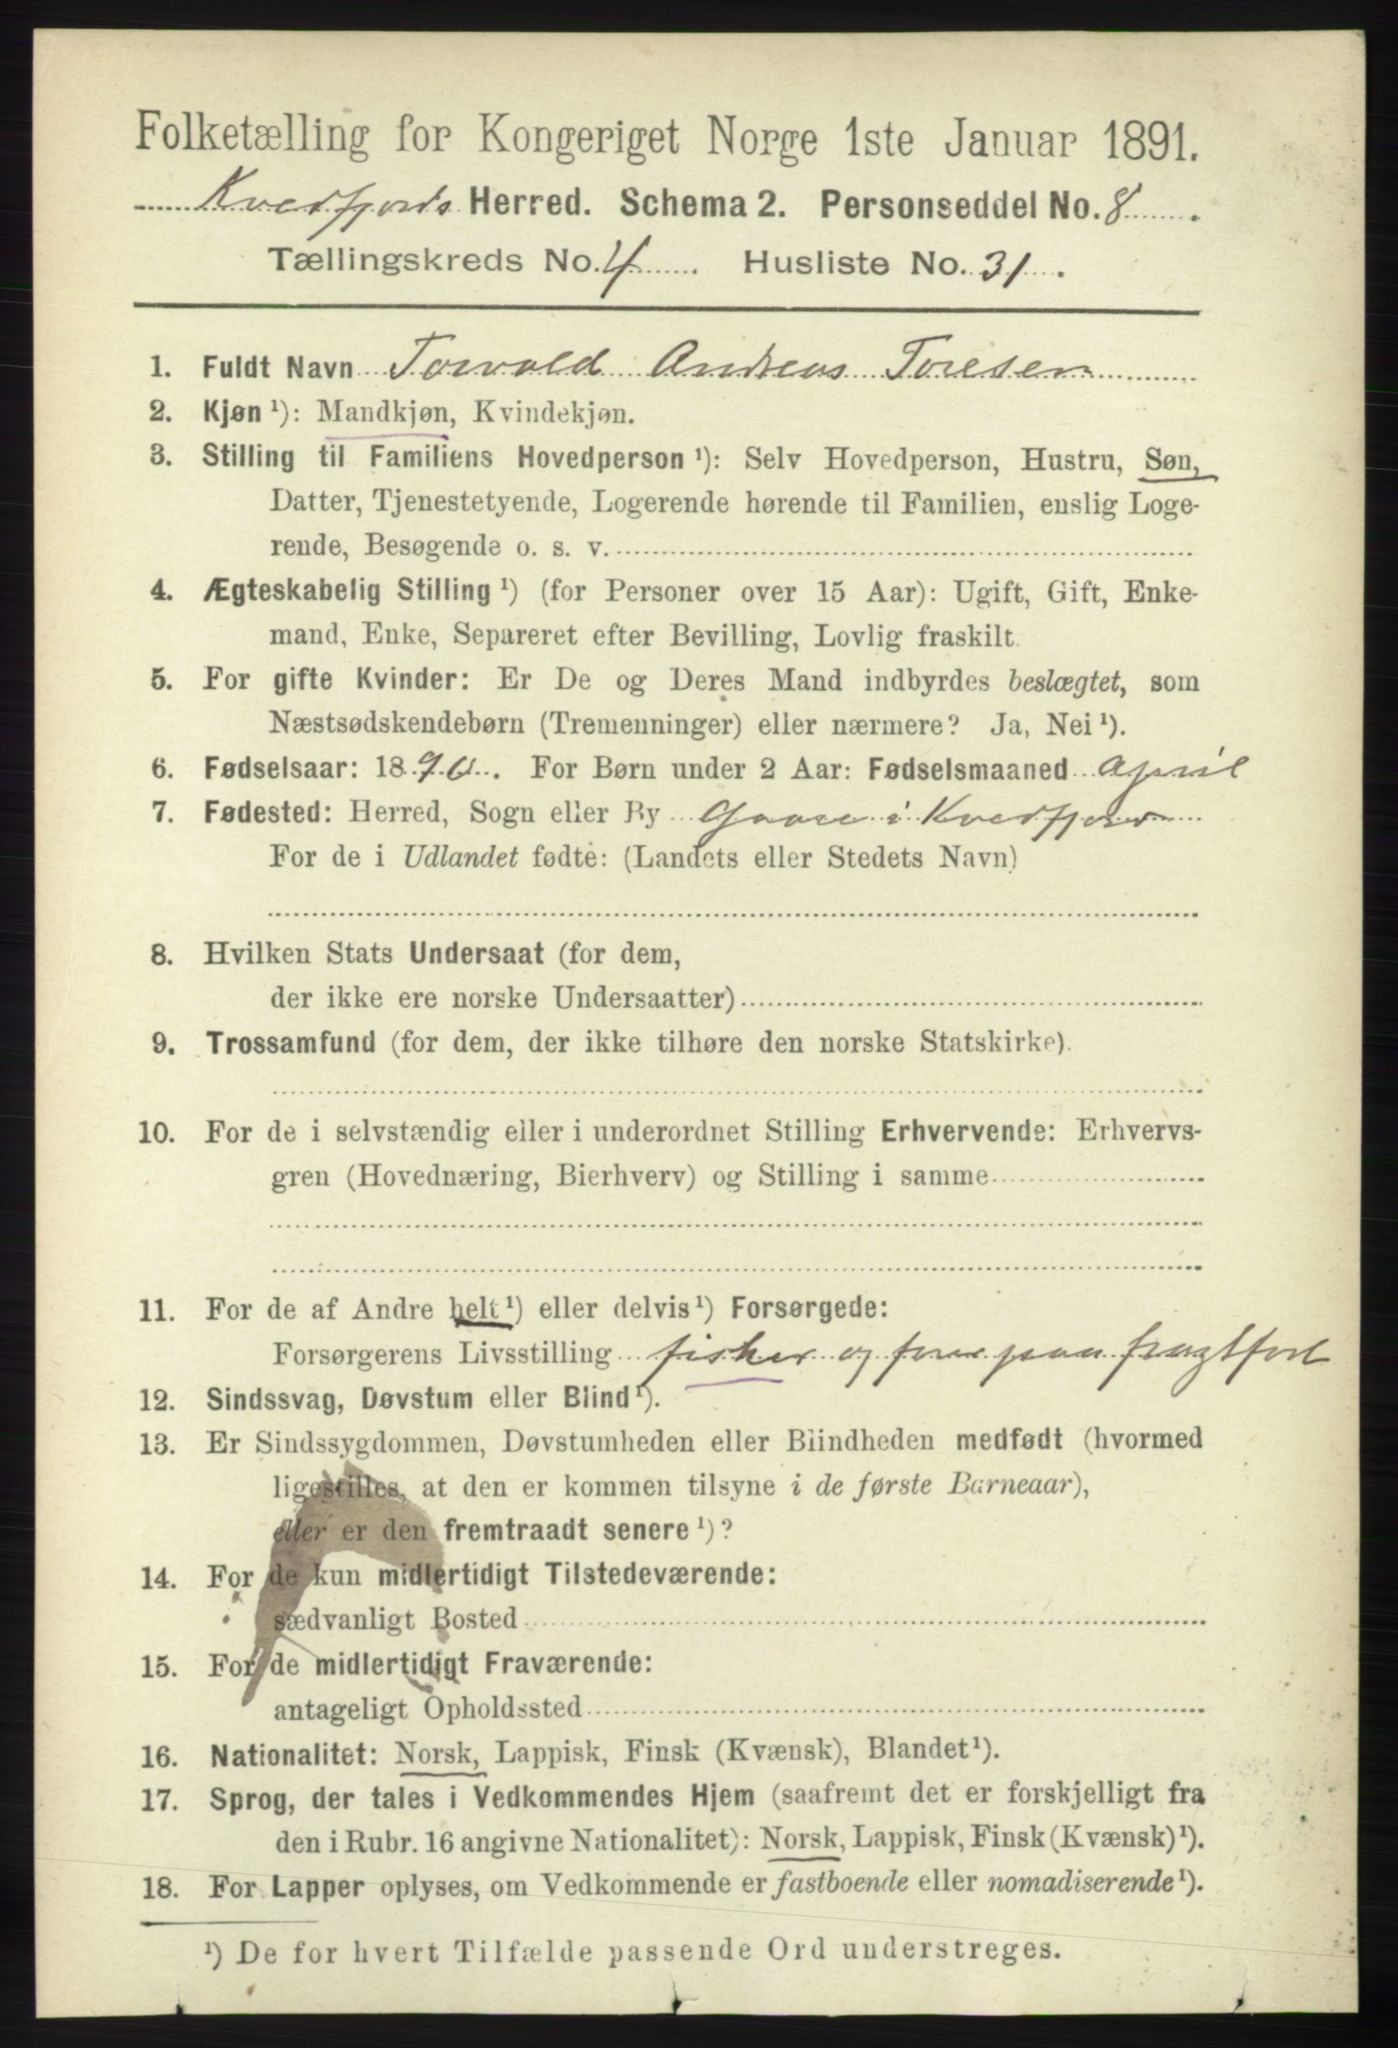 Folketælling for Kongeriget Norge 1ste Januar 1891.
Kvedfjords Herred. Schema 2. Personseddel No. 8.
Tællingskreds No. 4. Husliste No. 31.
1. Fuldt Navn Torvald Andreas Toresen
2. Kjøn ¹): Mandkjøn, Kvindekjøn.
3. Stilling til Familiens Hovedperson ¹): Selv Hovedperson, Hustru, Søn,
Datter, Tjenestetyende, Logerende hørende til Familien, enslig Loge-
rende, Besøgende o. s. v.
4. Ægteskabelig Stilling ¹) (for Personer over 15 Aar): Ugift, Gift, Enke-
mand, Enke, Separeret efter Bevilling, Lovlig fraskilt.
5. For gifte Kvinder: Er De og Deres Mand indbyrdes beslægtet, som
Næstsødskendebørn (Tremenninger) eller nærmere? Ja, Nei ¹).
6. Fødselsaar: 1890. For Børn under 2 Aar: Fødselsmaaned April
7. Fødested: Herred, Sogn eller By i Kvedfjord
For de i Udlandet fødte: (Landets eller Stedets Navn)
8. Hvilken Stats Undersaat (for dem,
der ikke ere norske Undersaatter)
9. Trossamfund (for dem, der ikke tilhøre den norske Statskirke).
10. For de i selvstændig eller i underordnet Stilling Erhvervende: Erhvervs-
gren (Hovednæring, Bierhverv) og Stilling i samme
11. For de af Andre helt ¹) eller delvis ¹) Forsørgede:
Forsørgerens Livsstilling fisker og paa
12. Sindssvag, Døvstum eller Blind ¹).
13. Er Sindssygdommen, Døvstumheden eller Blindheden medfødt (hvormed
ligestilles, at den er kommen tilsyne i de første Barneaar),
eller er den fremtraadt senere ¹)?
14. For de kun midlertidigt Tilstedeværende:
sædvanligt Bosted
15. For de midlertidigt Fraværende:
antageligt Opholdssted
16. Nationalitet: Norsk, Lappisk, Finsk (Kvænsk), Blandet ¹).
17. Sprog, der tales i Vedkommendes Hjem (saafremt det er forskjelligt fra
den i Rubr. 16 angivne Nationalitet): Norsk, Lappisk, Finsk (Kvænsk) ¹).
18. For Lapper oplyses, om Vedkommende er fastboende eller nomadiserende ¹).
¹) De for hvert Tilfælde passende Ord understreges.